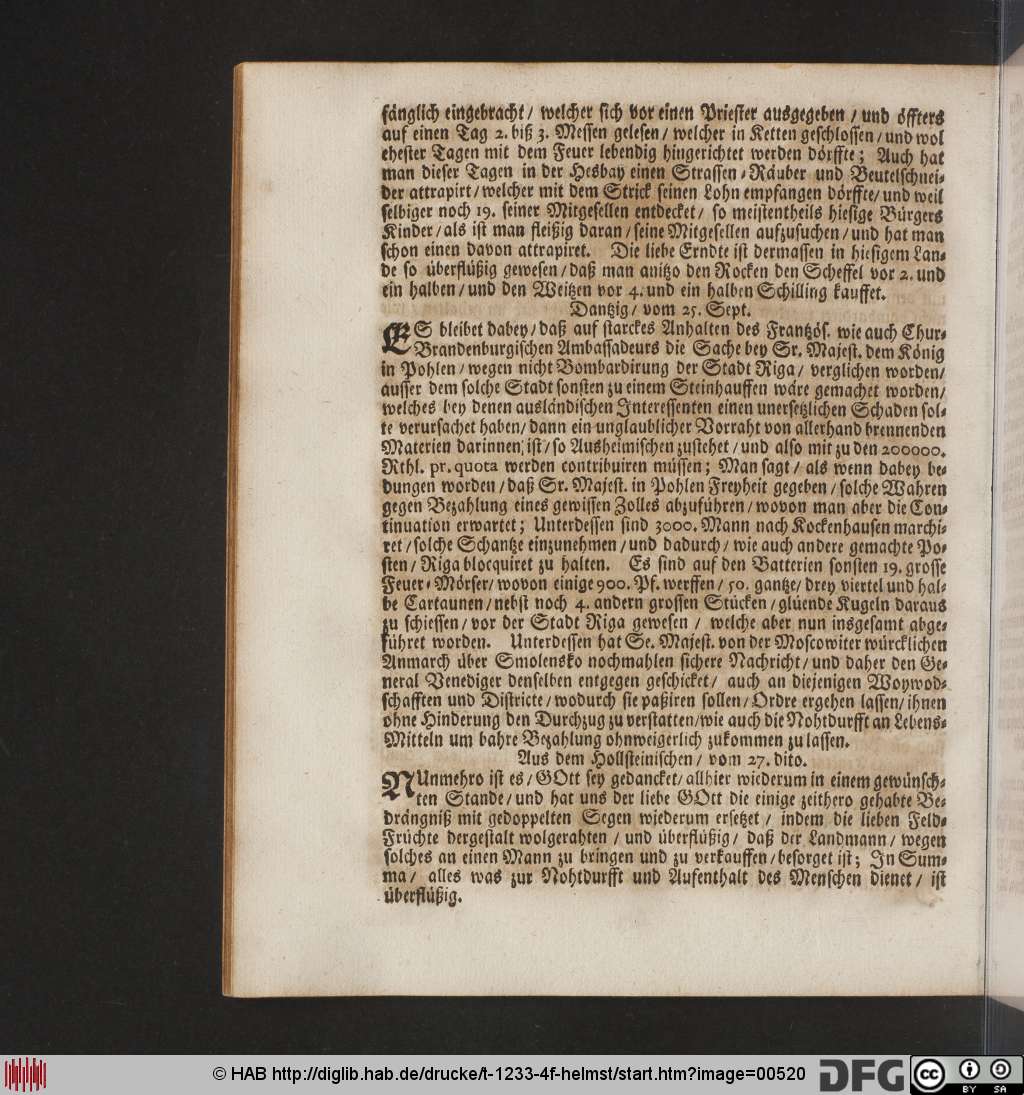 fänglich eingebracht / welcher sich vor einen Priester ausgegeben / und öffters
auf einen Tag 2. biß 3. Messen gelesen / welcher in Ketten geschlossen / und wol
ehester Tagen mit dem Feuer lebendig hingerichtet werden dörffte; Auch hat
man dieser Tagen in der Hesbay einen Strassen-Räuber und Beutelschnei-
der attrapirt / welcher mit dem Strick seinen Lohn empfangen dörffte / und weil
selbiger noch 19. seiner Mitgesellen entdecket / so meistentheils hiesige Bürgers
Kinder / als ist man fleißig daran / seine Mitgesellen aufzusuchen / und hat man
schon einen davon attrapiret. Die liebe Erndte ist dermassen in hiesigem Lan-
de so überflüßig gewesen / daß man anitzo den Rocken den Scheffel vor 2. und
ein halben / und den Weitzen vor 4. und ein halben Schilling kauffet.
Dantzig / vom 25. Sept.
ES bleibet dabey / daß auf starckes Anhalten des Frantzös. wie auch Chur-
Brandenburgischen Ambassadeurs die Sache bey Sr. Majest. dem König
in Pohlen / wegen nicht Bombardirung der Stadt Riga / verglichen worden /
ausser dem solche Stadt sonsten zu einem Steinhauffen wäre gemachet worden /
welches bey denen ausländischen Interessenten einen unersetzlichen Schaden sol-
te verursachet haben / dann ein unglaublicher Vorraht von allerhand brennenden
Materien darinnen ist / so Ausheimischen zustehet / und also mit zu den 200000.
Rthl. pr. quota werden contribuiren müssen; Man sagt / als wenn dabey be-
dungen worden / daß Sr. Majest. in Pohlen Freyheit gegeben / solche Wahren
gegen Bezahlung eines gewissen Zolles abzuführen / wovon man aber die Con-
tinuation erwartet; Unterdessen sind 3000. Mann nach Kockenhausen marchi-
ret / solche Schantze einzunehmen / und dadurch / wie auch andere gemachte Po-
sten / Riga blocquiret zu halten. Es sind auf den Batterien sonsten 19. grosse
Feuer-Mörser / wovon einige 900. Pf. werffen / 50. gantze / drey viertel und hal-
be Cartaunen / nebst noch 4. andern grossen Stücken / glüende Kugeln daraus
zu schiessen / vor der Stadt Riga gewesen / welche aber nun insgesamt abge-
führet worden. Unterdessen hat Se. Majest. von der Moscowiter würcklichen
Anmarch über Smolensko nochmahlen sichere Nachricht / und daher den Ge-
neral Venediger denselben entgegen geschicket / auch an diejenigen Woywod-
schafften und Districte / wodurch sie paßiren sollen / Ordre ergehen lassen / ihnen
ohne Hinderung den Durchzug zu verstatten / wie auch die Nohtdurfft an Lebens-
Mitteln um bahre Bezahlung ohnweigerlich zukommen zu lassen.
Aus dem Hollsteinischen / vom 27. dito.
NUnmehro ist es / GOtt sey gedancket / allhier wiederum in einem gewünsch-
ten Stande / und hat uns der liebe GOtt die einige zeithero gehabte Be-
drängniß mit gedoppelten Segen wiederum ersetzet / indem die lieben Feld-
Früchte dergestalt wolgerahten / und überflüßig / daß der Landmann / wegen
solches an einen Mann zu bringen und zu verkauffen / besorget ist; In Sum-
ma / alles was zur Nohtdurfft und Aufenthalt des Menschen dienet / ist
überflüßig.
© HAB http://diglib.hab.de/drucke/t-1233-4f-helmst/start.htm?image=00520
DFG
cc BY SA